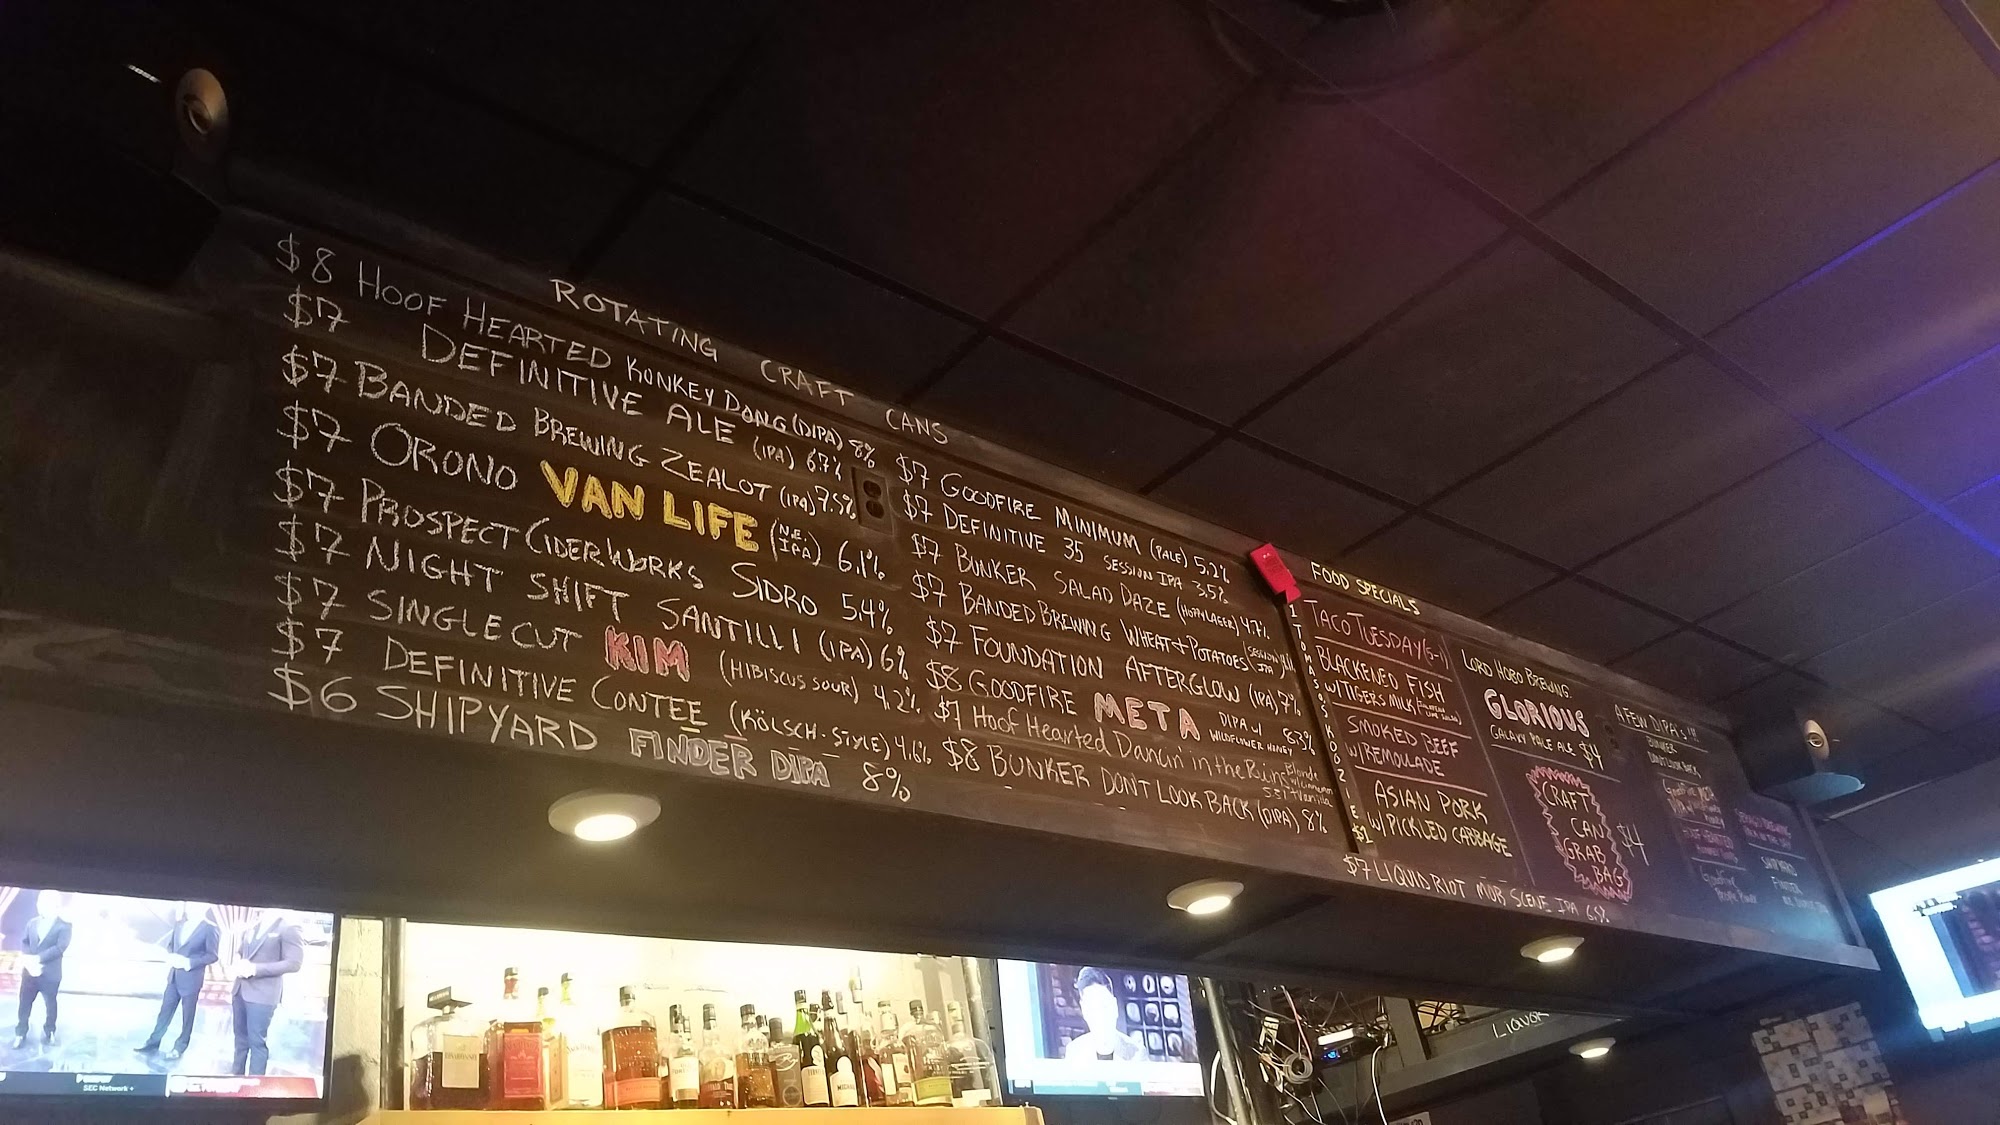 ROTATING CRAFT CANS
$8 HOOF HEARTED KONKEY DONG (DIPA) 8%
$7 DEFINITIVE ALE (IPA) 6.7%
$7 BANDED BREWING ZEALOT (IPA) 7.5%
$7 ORONO VAN LIFE (N.E. IPA) 6.1%
$7 PROSPECT CIDERWORKS SIDRO 5.4%
$7 NIGHT SHIFT SANTILLI (IPA) 6%
$7 SINGLECUT KIM (HIBISCUS SOUR) 4.2%
$7 DEFINITIVE CONTEE (KÖLSCH-STYLE) 4.6%
$6 SHIPYARD FINDER DIPA 8%
$7 GOODFIRE MINIMUM (PALE) 5.2%
$7 DEFINITIVE 35 SESSION IPA 3.5%
$7 BUNKER SALAD DAZE (HOPPY LAGER) 4.7%
$7 BANDED BREWING WHEAT + POTATOES (SESSION IPA)
$7 FOUNDATION AFTERGLOW (IPA) 7%
$8 GOODFIRE META DIPA W/ WILDFLOWER HONEY 8.3%
$7 Hoof Hearted Dancin' in the Ring Blonde w/ Cinnamon + Vanilla
$8 BUNKER DON'T LOOK BACK (DIPA) 8%
FOOD SPECIALS
TACO TUESDAY (5-1)
BLACKENED FISH
W/ TIGERS MILK
SMOKED BEEF
W/ REMOULADE
ASIAN PORK
W/ PICKLED CABBAGE
$1
$7 LIQUID RIOT MOB SCENE IPA 6.5%
LORD HOBO BREWING
GLORIOUS
GALAXY PALE ALE $4
CRAFT
CAN
GRAB
BAG
$4
A FEW DIPA'S!!!
BUNKER
DONT LOOK BACK
SHIPYARD
FINDER
LIQUOR
SEC Network +
BOSE